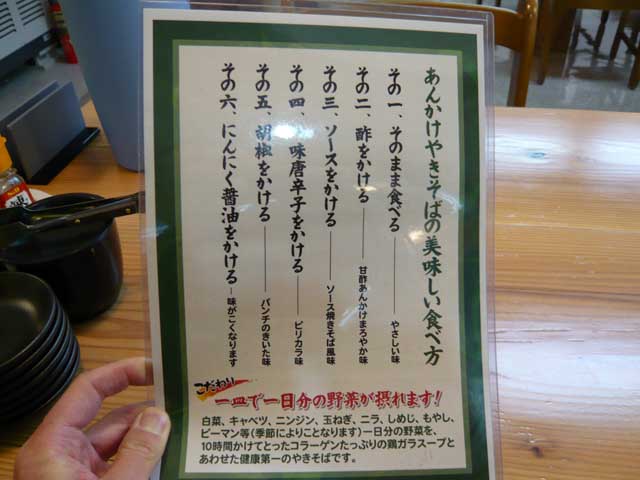 あんかけやきそばの美味しい食べ方
その一、そのまま食べる――やさしい味
その二、酢をかける――甘酢あんかけまろやか味
その三、ソースをかける――ソース焼きそば風味
その四、味唐辛子をかける――ピリカラ味
その五、胡椒をかける――パンチのきいた味
その六、にんにく醤油をかける―味がこくなります
こだわり
一皿で一日分の野菜が摂れます!
白菜、キャベツ、ニンジン、玉ねぎ、ニラ、しめじ、もやし、
ピーマン等(季節によりことなります)一日分の野菜を、
10時間かけてとったコラーゲンたっぷりの鶏ガラスープと
あわせた健康第一のやきそばです。